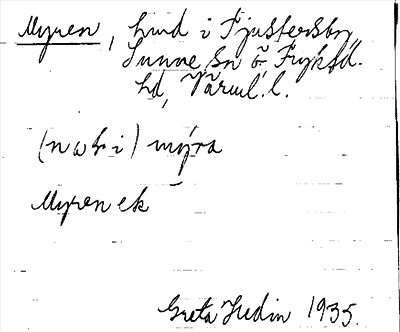 Myren, hmd i Fjustersby,
Sunne sn ö. Fryksd.
hd, Värml. l.
(n a b i) mýra
Myren ek
Greta Hedin 1935.